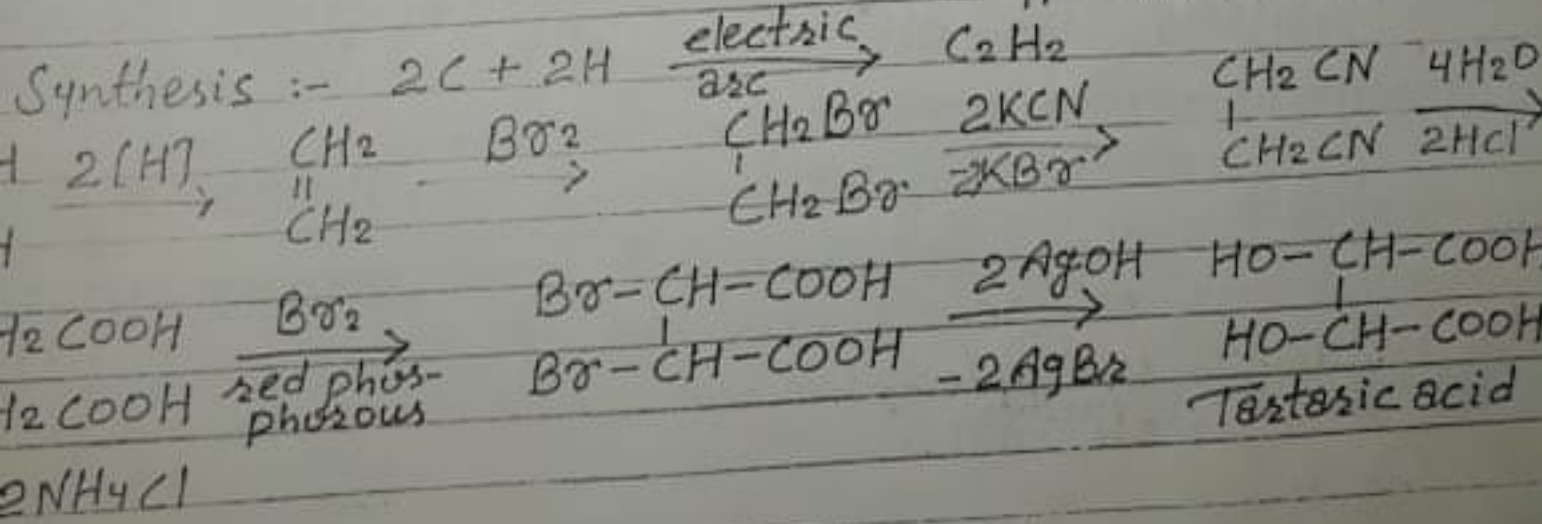 Synthesis :- 2C + 2H electric arc → C2H2
H 2[H] → CH2 || CH2 Br2 → CH2Br | CH2Br 2KCN -2KBr → CH2CN | CH2CN 4H2O 2HCl →
H
H2COOH H2COOH Br2 red phos-phorous → Br-CH-COOH | Br-CH-COOH 2AgOH -2AgBr → HO-CH-COOH | HO-CH-COOH
Tartaric acid
2NH4Cl